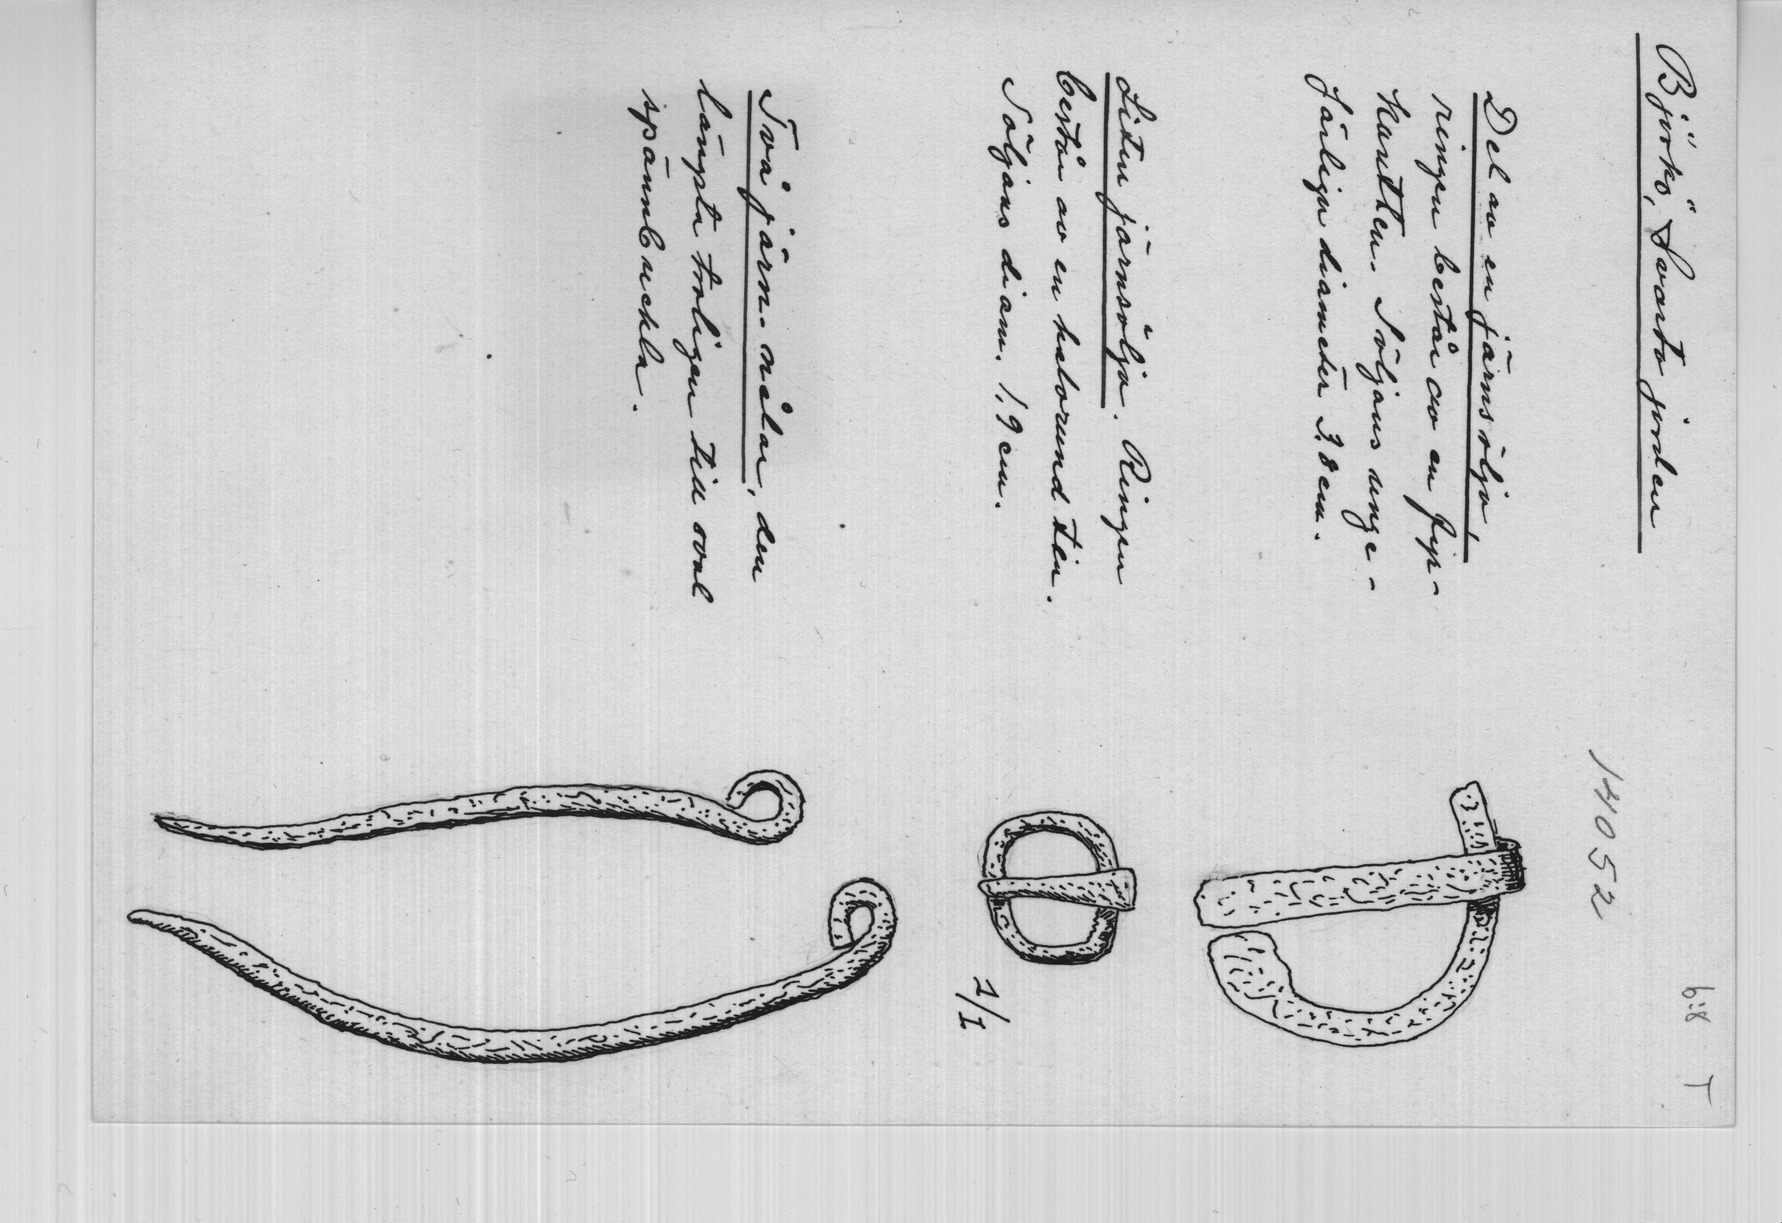 Björkö, Svarta jorden
6:8 T
14052
Del av en järnsölja,
ringen består av en fyr-
kantten. Söljans unge-
färliga diameter 3.8 cm.
Liten järnsölja. Ringen
består av en halvrund ten.
Söljans diam. 1,9 cm.
1/1
Två järn-nålar, den
längsta troligen till oval
spännbuckla.